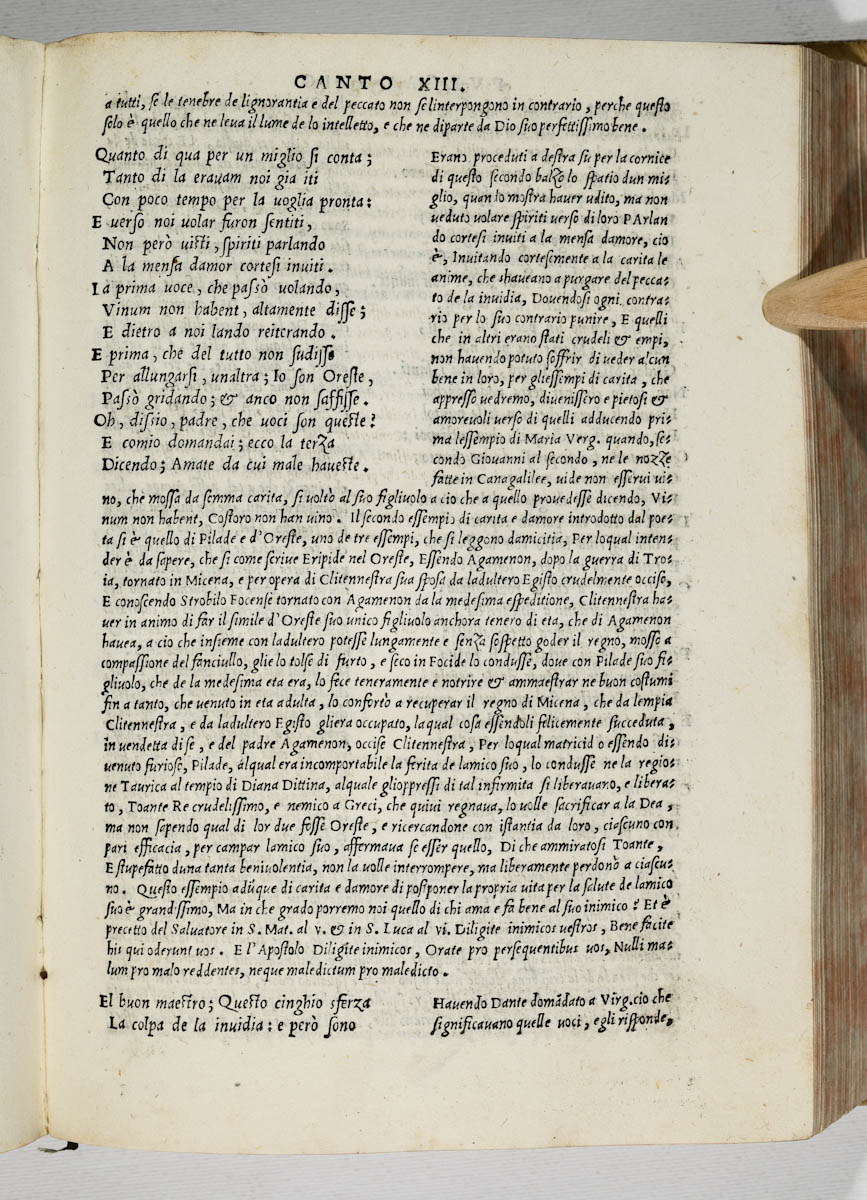 CANTO XIII.
a tutti, se le tenebre de lignorantia e del peccato non sełinterpongono in contrario, perche questo
solo è quello che ne leua il lume de lo intelletto, e che ne diparte da Dio suo perfettissimo bene.
Quanto di qua per un miglio si conta;
Tanto di la erauam noi gia iti
Con poco tempo per la uoglia pronta:
E uerso noi uolar furon sentiti,
Non però uisti, spiriti parlando
A la mensa damor cortesi inuiti.
La prima uoce, che passò uolando,
Vinum non habent, altamente disse;
E dietro a noi lando reiterando.
E prima, che del tutto non sudisse
Per allungarsi, unaltra; Io son Oreste,
Passò gridando; & anco non saffisse.
Oh, dissio, padre, che uoci son queste?
E comio domandai; ecco la terza
Dicendo; Amate da cui male haueste.
Erano proceduti a destra su per la cornice
di questo secondo balzo lo spatio dun mi-
glio, quando mostra hauer udito, ma non
ueduto uolare spiriti uerso di loro PArlan
do cortesi inuiti a la mensa damore, cio
è, Inuitando cortesimente a la carita le
anime, che shaueano a purgare del pecca-
to de la inuidia, Douendosi ogni contra-
rio per lo suo contrario punire, E quelli
che in altri erano stati crudeli & empi,
non hauendo potuto soffrir di ueder alcun
bene in loro, per gliessempi di carita, che
appresso uedremo, diuenissero e pietosi &
amoreuoli uerso di quelli adducendo pri-
ma lessempio di Maria Verg. quando, se-
condo Giouanni al secondo, ne le nozze
fatte in Canagalilee, uide non esserui ui-
no, che mossa da somma carita, si uoltò al suo figliuolo a cio che a quello prouedesse dicendo, Vi-
num non habent, Costoro non han uino. Il secondo essempio di carita e damore introdotto dal poe-
ta si è quello di Pilade e d'Oreste, uno de tre essempi, che si leggono damicitia, Per loqual inten-
der è da sapere, che si come scriue Eripide nel Oreste, Essendo Agamenon, dopo la guerra di Tro-
ia, tornato in Micena, e per opera di Clitennestra sua sposa da ladultero Egisto crudelmente occiso,
E conoscendo Strobilo Focense tornato con Agamenon da la medesima espeditione, Clitennestra ha-
uer in animo di far il simile d'Oreste suo unico figliuolo anchora tenero di eta, che di Agamenon
hauea, a cio che insieme con ladultero potesse lungamente e senza sospetto goder il regno, mosso a
compassione del fanciullo, glie lo tolse di furto, e seco in Focide lo condusse, doue con Pilade suo fi-
gliuolo, che de la medesima eta era, lo fece teneramente e notrire & ammaestrar ne buon costumi
fin a tanto, che uenuto in eta adulta, lo confortò a recuperar il regno di Micena, che da lempia
Clitennestra, e da ladultero Egisto gliera occupato, laqual cosa essendoli felicemente succeduta,
in uendetta di se, e del padre Agamenon, occise Clitennestra, Per loqual matricid o essendo di-
uenuto furioso, Pilade, alqual era incomportabile la ferita de lamico suo, lo condusse ne la regio-
ne Taurica al tempio di Diana Dittina, alquale glioppressi di tal infirmita si liberauano, e libera-
to, Toante Re crudelissimo, e nemico a Greci, che quiui regnaua, lo uolle sacrificar a la Dea,
ma non sapendo qual di lor due fosse Oreste, e ricercandone con istantia da loro, ciascuno con
pari efficacia, per campar lamico suo, affermaua se esser quello, Di che ammiratosi Toante,
E stupefatto duna tanta beniuolentia, non la uolle interrompere, ma liberamente perdonò a ciascu-
no. Questo essempio adūque di carita e damore di posiponer la propria uita per la salute de lamico
suo è grandissimo, Ma in che grado porremo noi quello di chi ama e fa bene al suo inimico? Et è
precetto del Saluatore in S. Mat. al v. & in S. Luca al vi. Diligite inimicos uestros, Bene facite
his qui oderunt uos. E l'Apostolo Diligite inimicos, Orate pro persequentibus uos, Nulli ma-
lum pro malo reddentes, neque maledictum pro maledicto.
El buon maestro; Questo cinghio sferza
La colpa de la inuidia: e però sono
Hauendo Dante domādato a Virg. cio che
significauano quelle uoci, egli risponde,